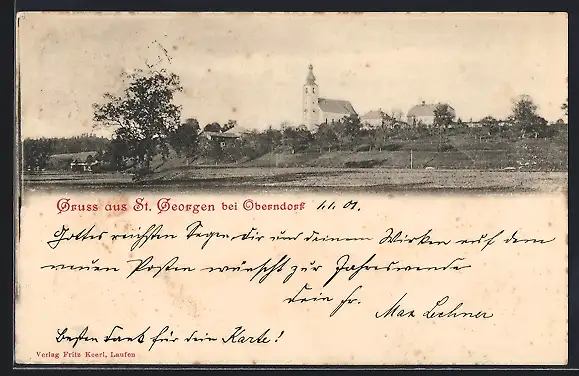 Gruss aus St. Georgen bei Oberndorf 1.1.01.
Gottes reichsten Segen Dir und deinem Wirken auf dem
neuen Posten wünscht zur Jahreswende
Dein fr. Max Lechner
Besten Dank für dein Karte!
Verlag Fritz Keerl, Laufen